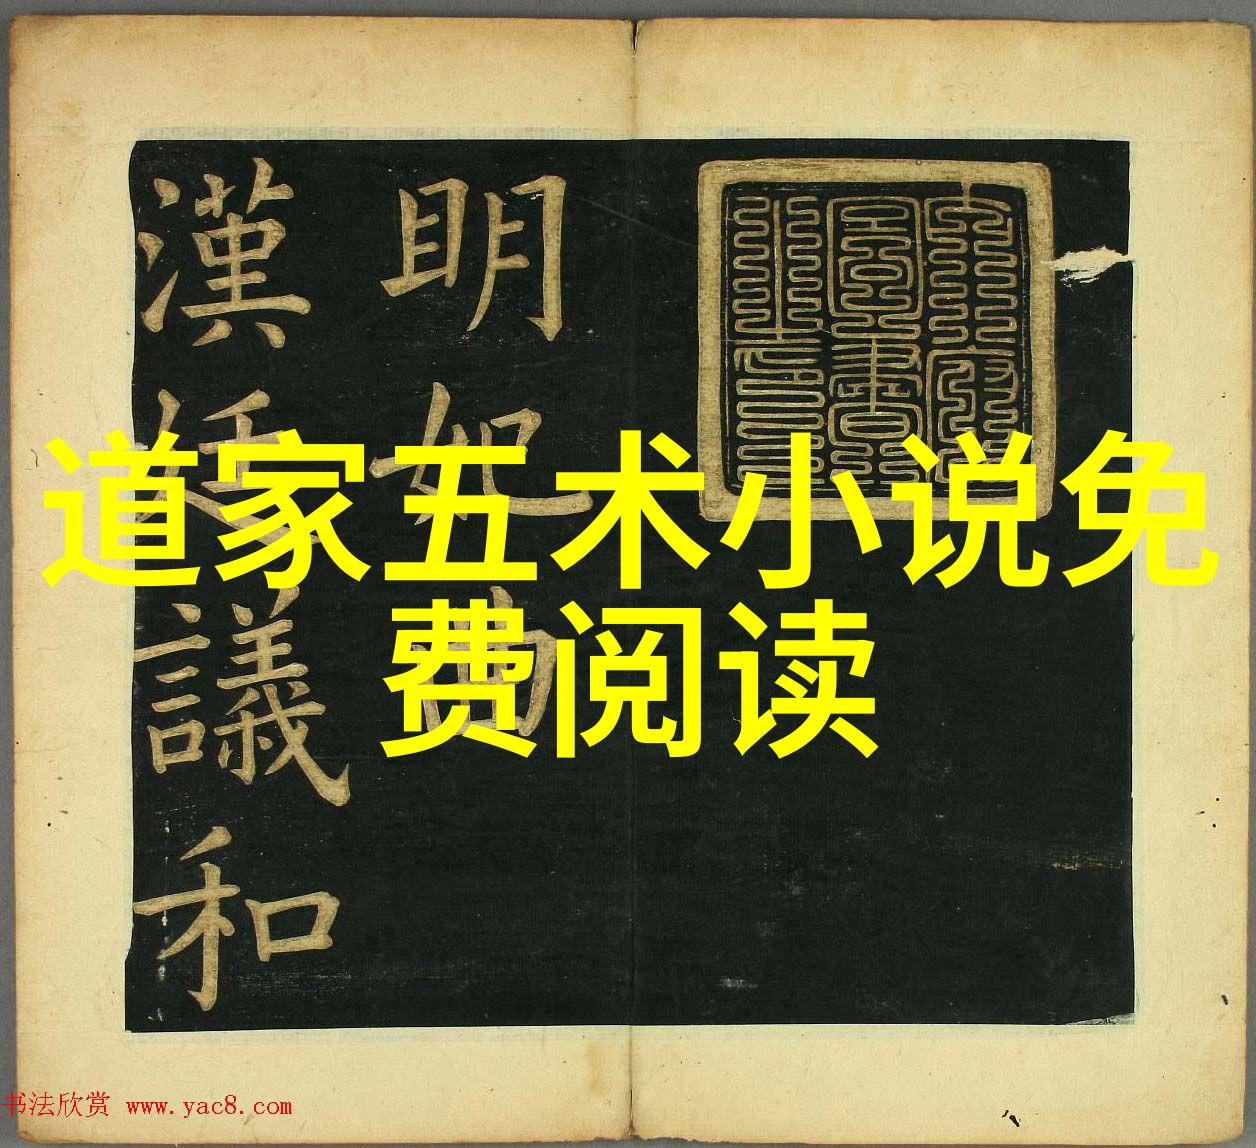 道家五术小说免
费阅读
明妃曲
漢廷議和
书法欣赏 www.yac8.com